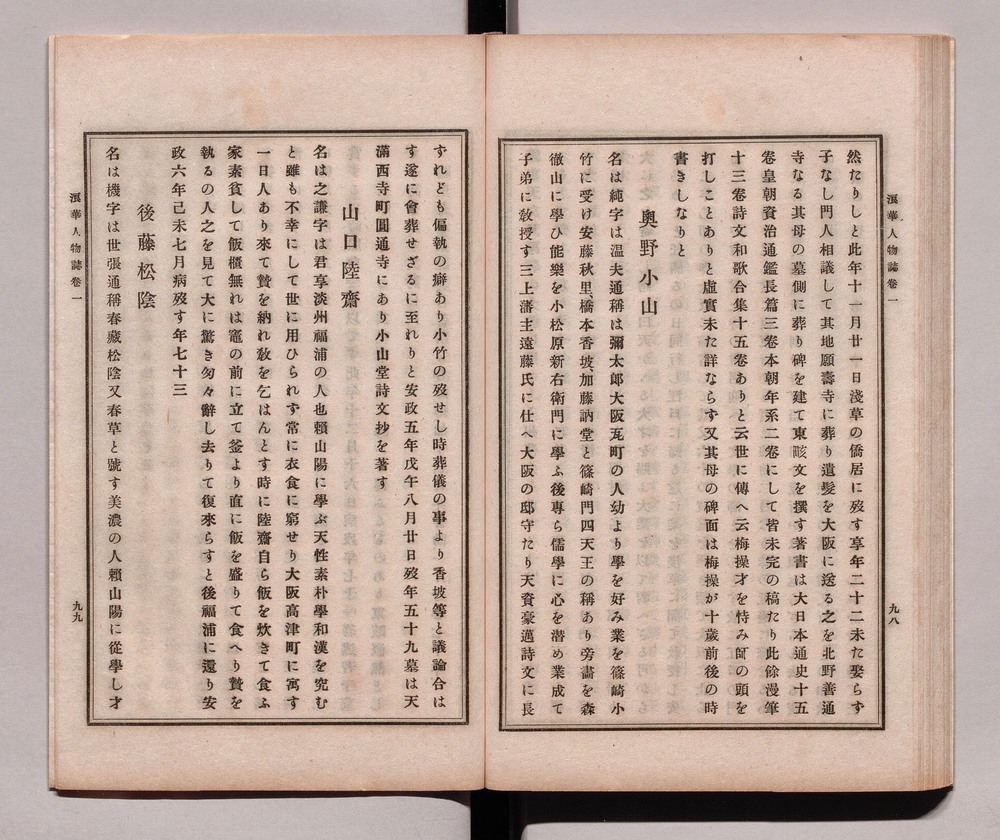 浪華人物誌卷一
九八
然たりしと此年十一月廿一日淺草の僑居に歿す享年二十二未た娶らす
子なし門人相議して其地願壽寺に葬り遺髮を大阪に送る之を北野善通
寺なる其母の墓側に葬り碑を建て東畡文を撰す著書は大日本通史十五
卷皇朝資治通鑑長篇三卷本朝年系二卷にして皆未完の稿たり此餘漫筆
十三卷詩文和歌合集十五卷ありと云世に傳へ云梅操才を恃み師の頭を
打しことありと虛實未た詳ならす又其母の碑面は梅操が十歲前後の時
書きしなりと
奧野小山
名は純字は温夫通稱は彌太郎大阪瓦町の人幼より學を好み業を篠崎小
竹に受け安藤秋里、橋本香坡、加藤訥堂と篠崎門四天王の稱あり旁畵を森
徹山に學ひ能樂を小松原新右衛門に學ふ後專ら儒學に心を潜め業成て
子弟に敎授す三上藩主遠藤氏に仕へ大阪の邸守たり天資豪邁詩文に長
すれども偏執の癖あり小竹の歿せし時葬儀の事より香坡等と議論合は
す遂に會葬せざるに至れりと安政五年戊午八月廿日歿年五十九墓は天
滿西寺町圓通寺にあり小山堂詩文抄を著す
山口陸齋
名は之謙字は君享淡州福浦の人也賴山陽に學ぶ天性素朴學和漢を究む
と雖も不幸にして世に用ひられす常に衣食に窮せり大阪高津町に寓す
一日人あり來て贄を納れ敎を乞はんとす時に陸齋自ら飯を炊きて食ふ
家素貧して飯櫃無れは竈の前に立て釜より直に飯を盛りて食へり贄を
執るの人之を見て大に驚き匆々辭し去りて復來らすと後福浦に還り安
政六年己未七月病歿す年七十三
後藤松陰
名は機字は世張通稱春藏松陰又春草と號す美濃の人賴山陽に從學し才
浪華人物誌卷一
九九